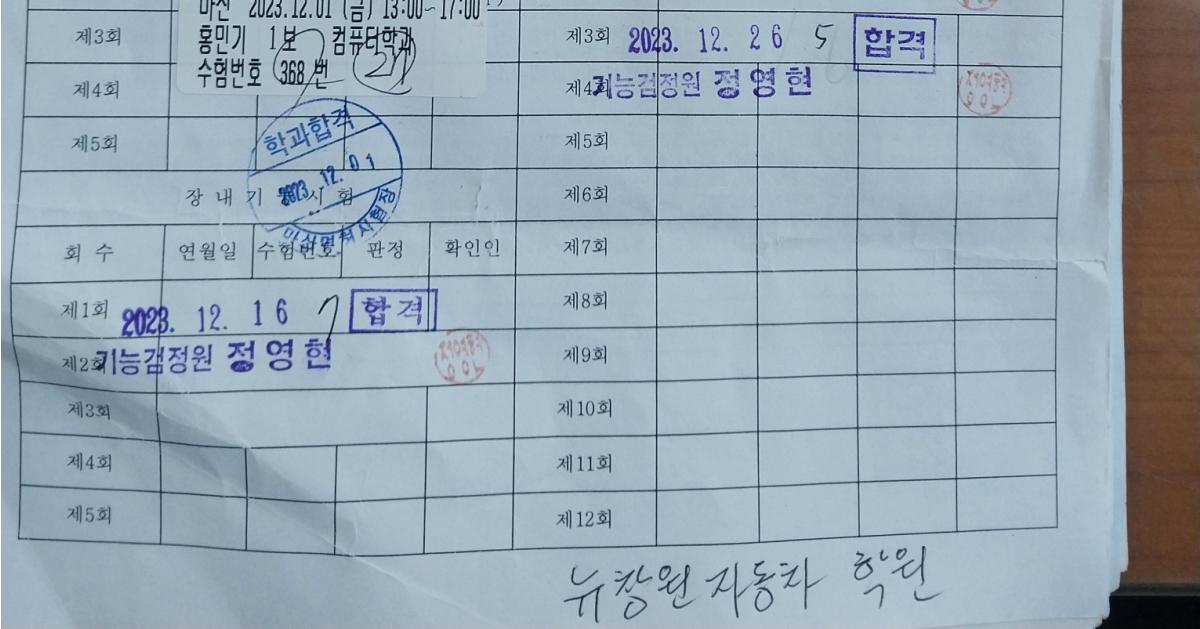 마산 2023.12.01 (금) 13:00~17:00
홍민기 1보 컴퓨터학과
수험번호 368 번
제3회
제4회
제5회
학과합격
2023.12.01
장내기 시험
회수 연월일 수험번호 판정 확인인
제1회 2023. 12. 16 7 합격
제2회 기능검정원 정영현
제3회
제4회
제5회
제3회 2023. 12. 26 5 합격
제4회 기능검정원 정영현
제5회
제6회
제7회
제8회
제9회
제10회
제11회
제12회
뉴창원자동차 학원